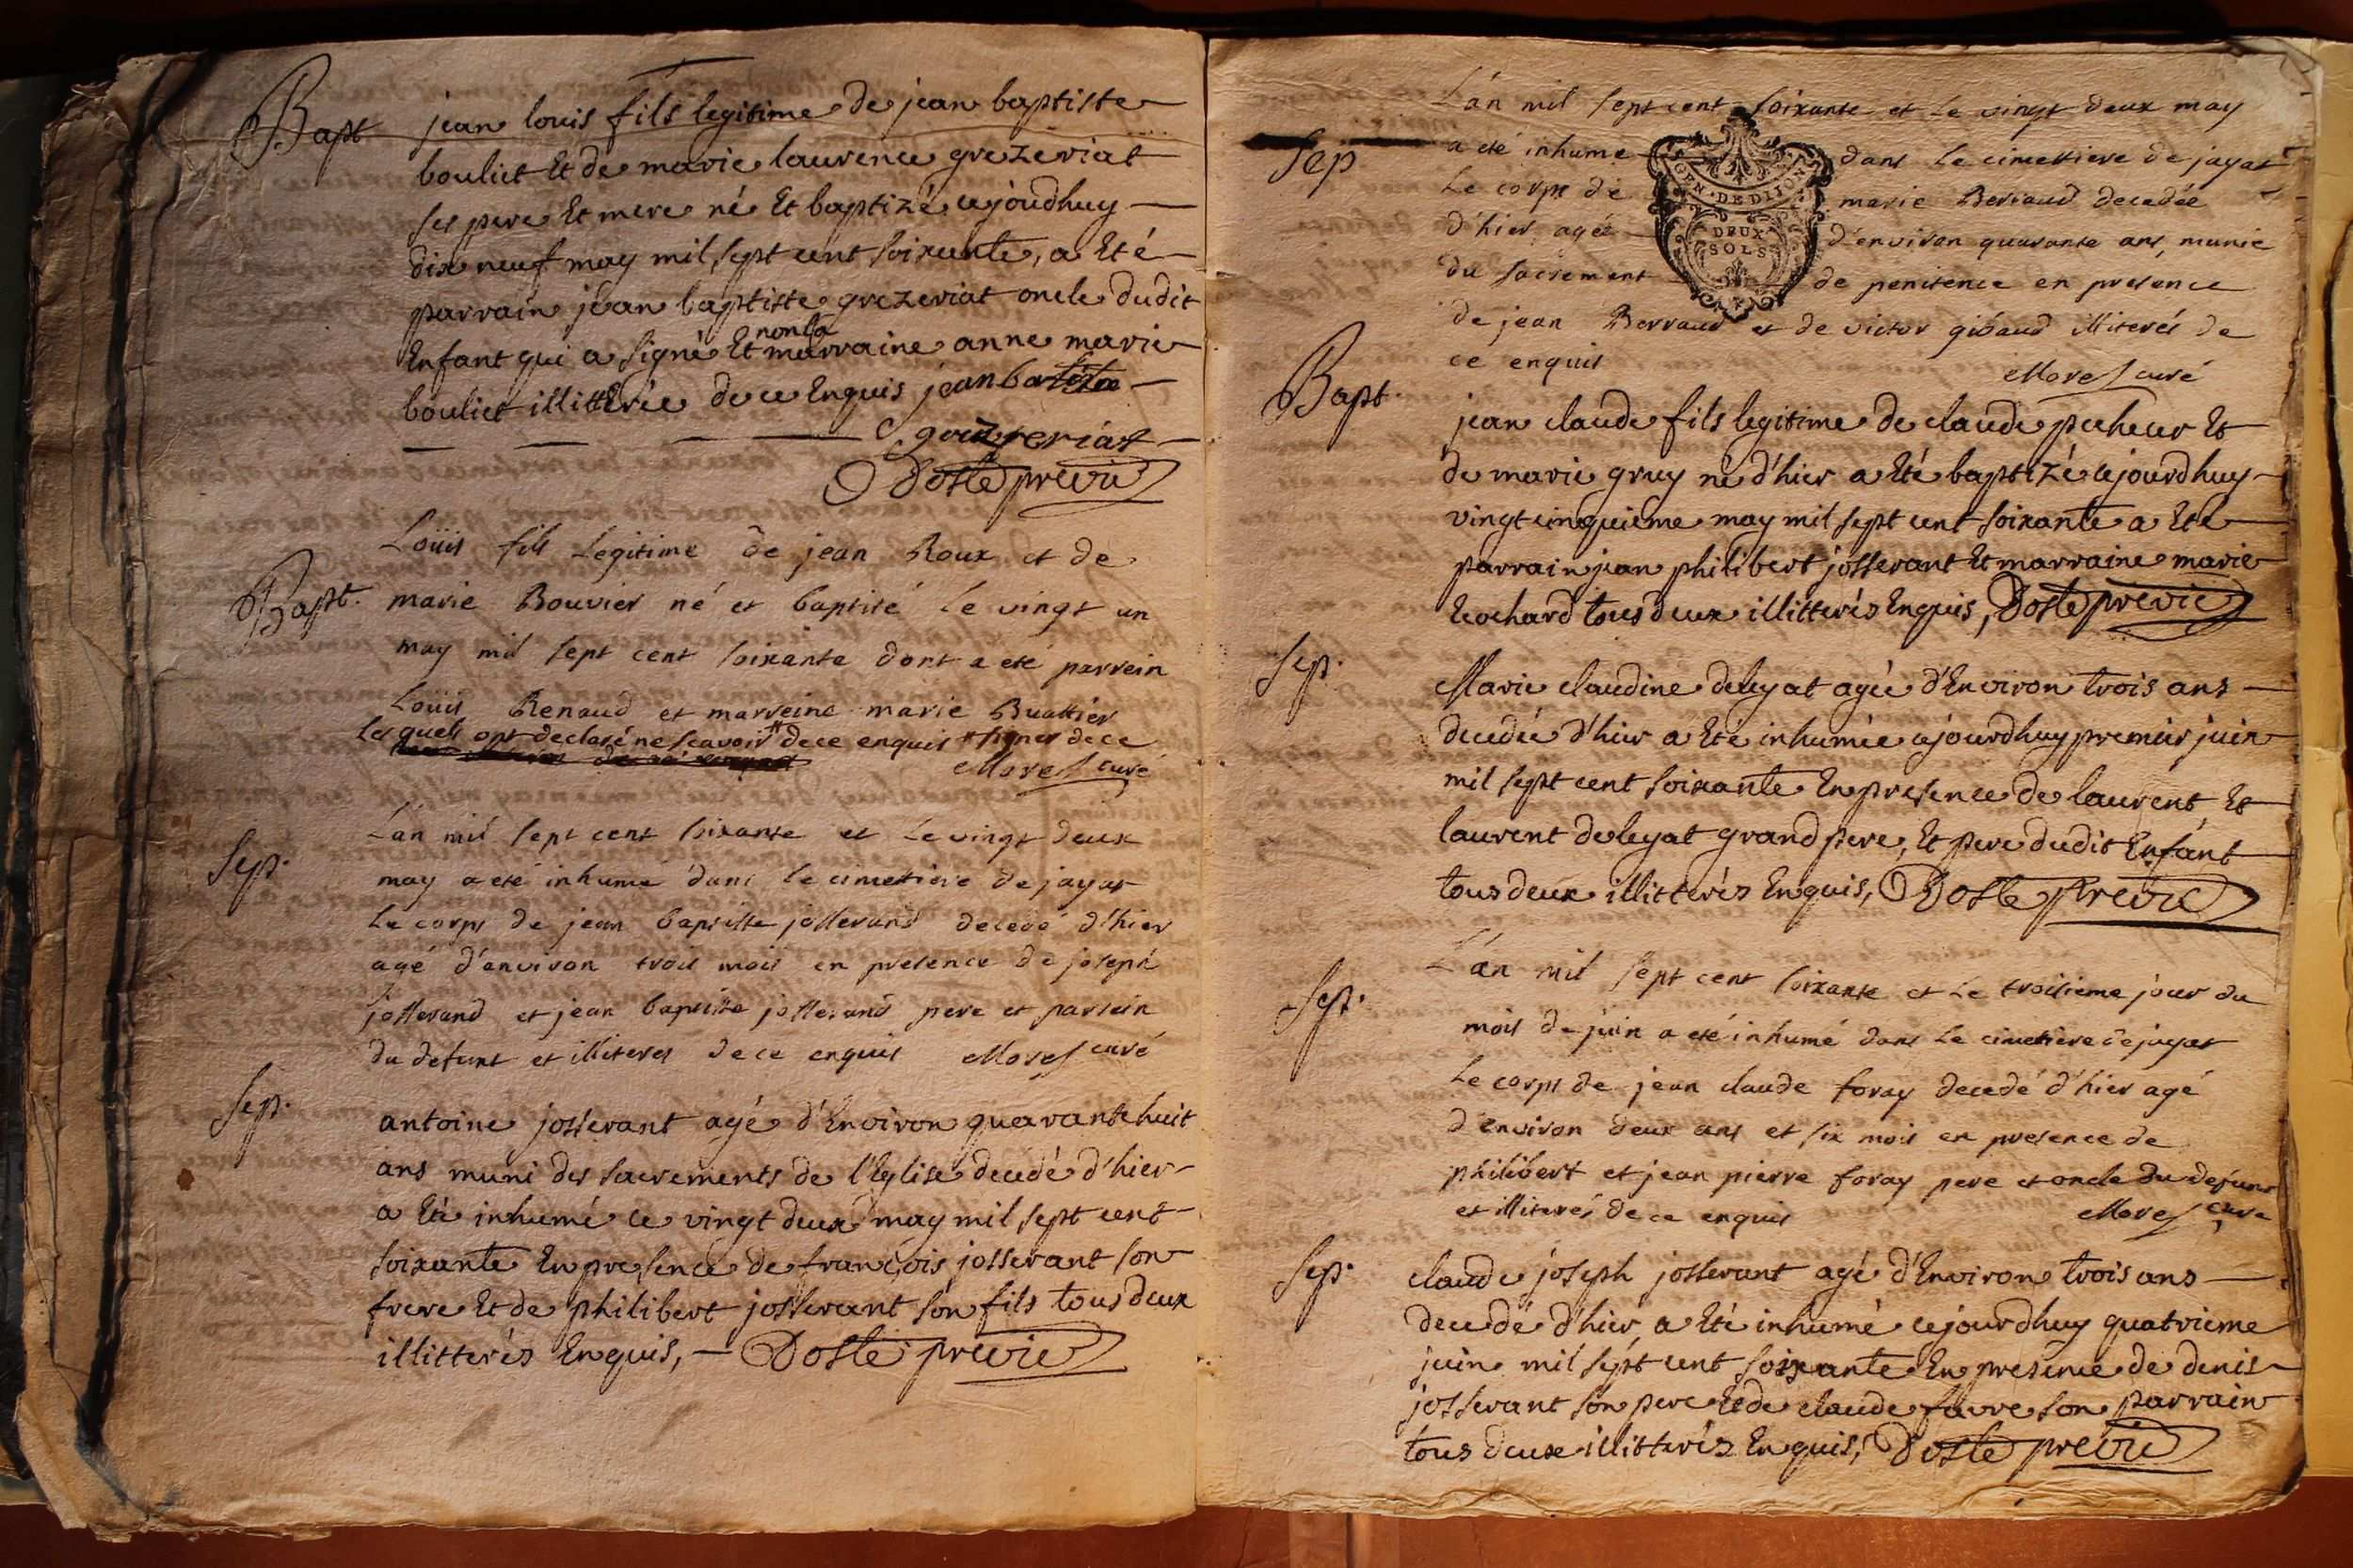 Bapt jean louis fils legitime de jean baptiste
bouliet Et de marie laurence grezeriat
ses pere Et mere né Et baptizé cejoudhuy
dix neuf may mil sept cent soixante, a Eté
parrain jean baptiste grezeriat oncle dudit
Enfant qui a signé Et non la marraine anne marie
bouliet illitterée de ce Enquis jean batiste
Doste prevre
Loüis fils Legitime de jean Roux et de
Bapt. marie Bouvier né et baptisé le vingt un
may mil sept cent soixante dont a eté parrein
Loüis Renaud et marreine marie Buattier
Lesquels ont declaré ne scavoir # de ce enquis # signer de ce
Morel curé
L'an mil sept cent soixante et Le vingt deux
Sep. may a eté inhumé dans le cimetiere de jayat
Le corps de jean baptiste josserand decedé d'hier
agé d'environ trois mois en presence de joseph
josserand et jean baptiste josserand pere et parrein
du defunt et illiterés de ce enquis Morel curé
Sep.
antoine josserant agé d'Environ quarante huit
ans muni des sacrements de l'Eglise decedé d'hier
a Eté inhumé ce vingt deux may mil sept cent
soixante En presence de françois josserant son
frere Et de philibert josserant son fils tous deux
illitterés Enquis, Doste prevre
L'an mil sept cent soixante et Le vingt deux may
Sep a eté inhumé dans Le cimettiere de jayat
Le corps de marie Berraud decedée
d'hier agée d'environ quarante ans munie
du sacrement de penitence en presence
de jean Berraud et de victor gibaud illiterés de
ce enquis
Morel curé
GEN · DE DIJON
DEUX
SOLS
Bapt. jean claude fils legitime de claude pecheur Et
de marie gruy né d'hier a Eté baptizé cejourdhuy
vingt cinquieme may mil sept cent soixante a Eté
parrain jean philibert josserant Et marraine marie
tous deux illitterés Enquis, Doste prevre
Sep. Marie claudine deleyat agée d'Environ trois ans
decedée d'hier a Eté inhumée cejourdhuy premier juin
mil sept cent soixante En presence de laurent Et
laurent deleyat grand pere, Et pere dudit Enfant
tous deux illitterés Enquis, Doste prevre
L'an mil sept cent soixante et Le troisieme jour du
Sep. mois de juin a eté inhumé dans Le cimetiere de jayat
Le corps de jean claude foray decedé d'hier agé
d'environ deux ans et six mois en presence de
philibert et jean pierre foray pere et oncle du defunt
et illiterés de ce enquis Morel curé
Sep. claude joseph josserant agé d'Environ trois ans
decedé d'hier, a Eté inhumé cejourdhuy quatrieme
juin mil sept cent soixante En presence de denis
josserant son pere Et de claude favre son parrain
tous deux illitterés Enquis, Doste prevre